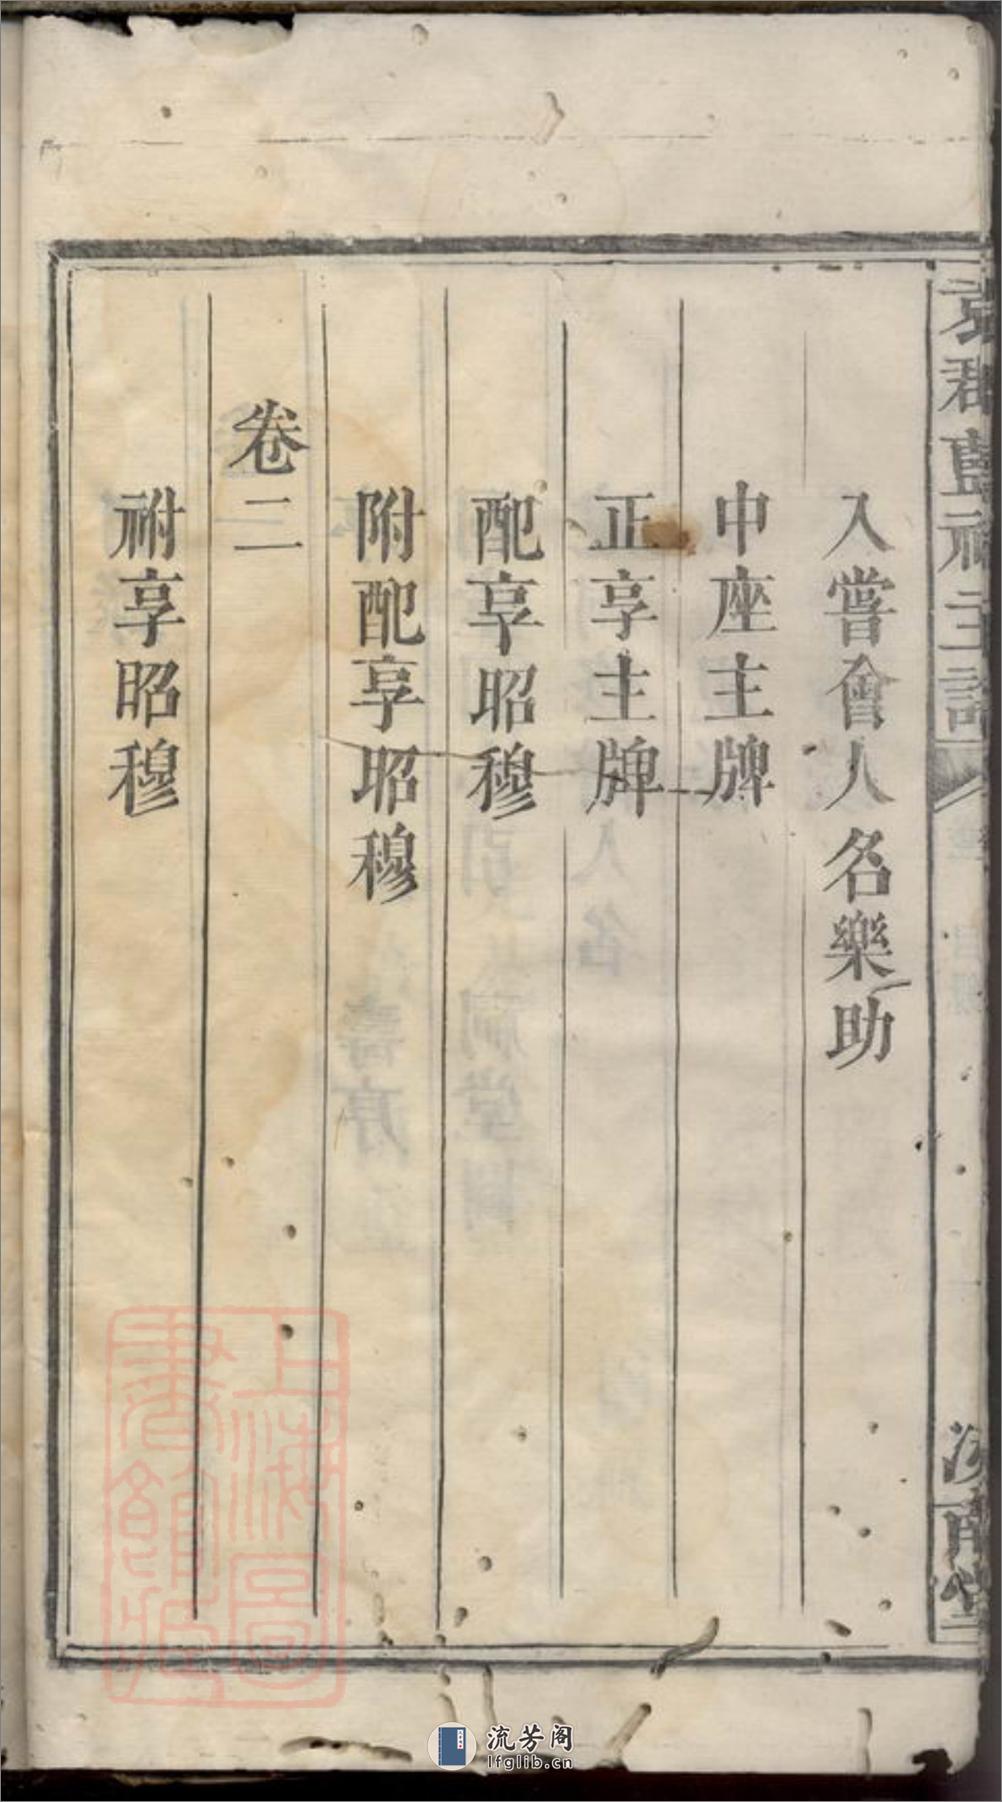 袁郡藍祠主譜
汝南堂
入嘗會人名樂助
中座主牌
正享主牌
配享昭穆
附配享昭穆
卷二
祔享昭穆
上海圖
書館藏
流芳阁
lfglib.cn